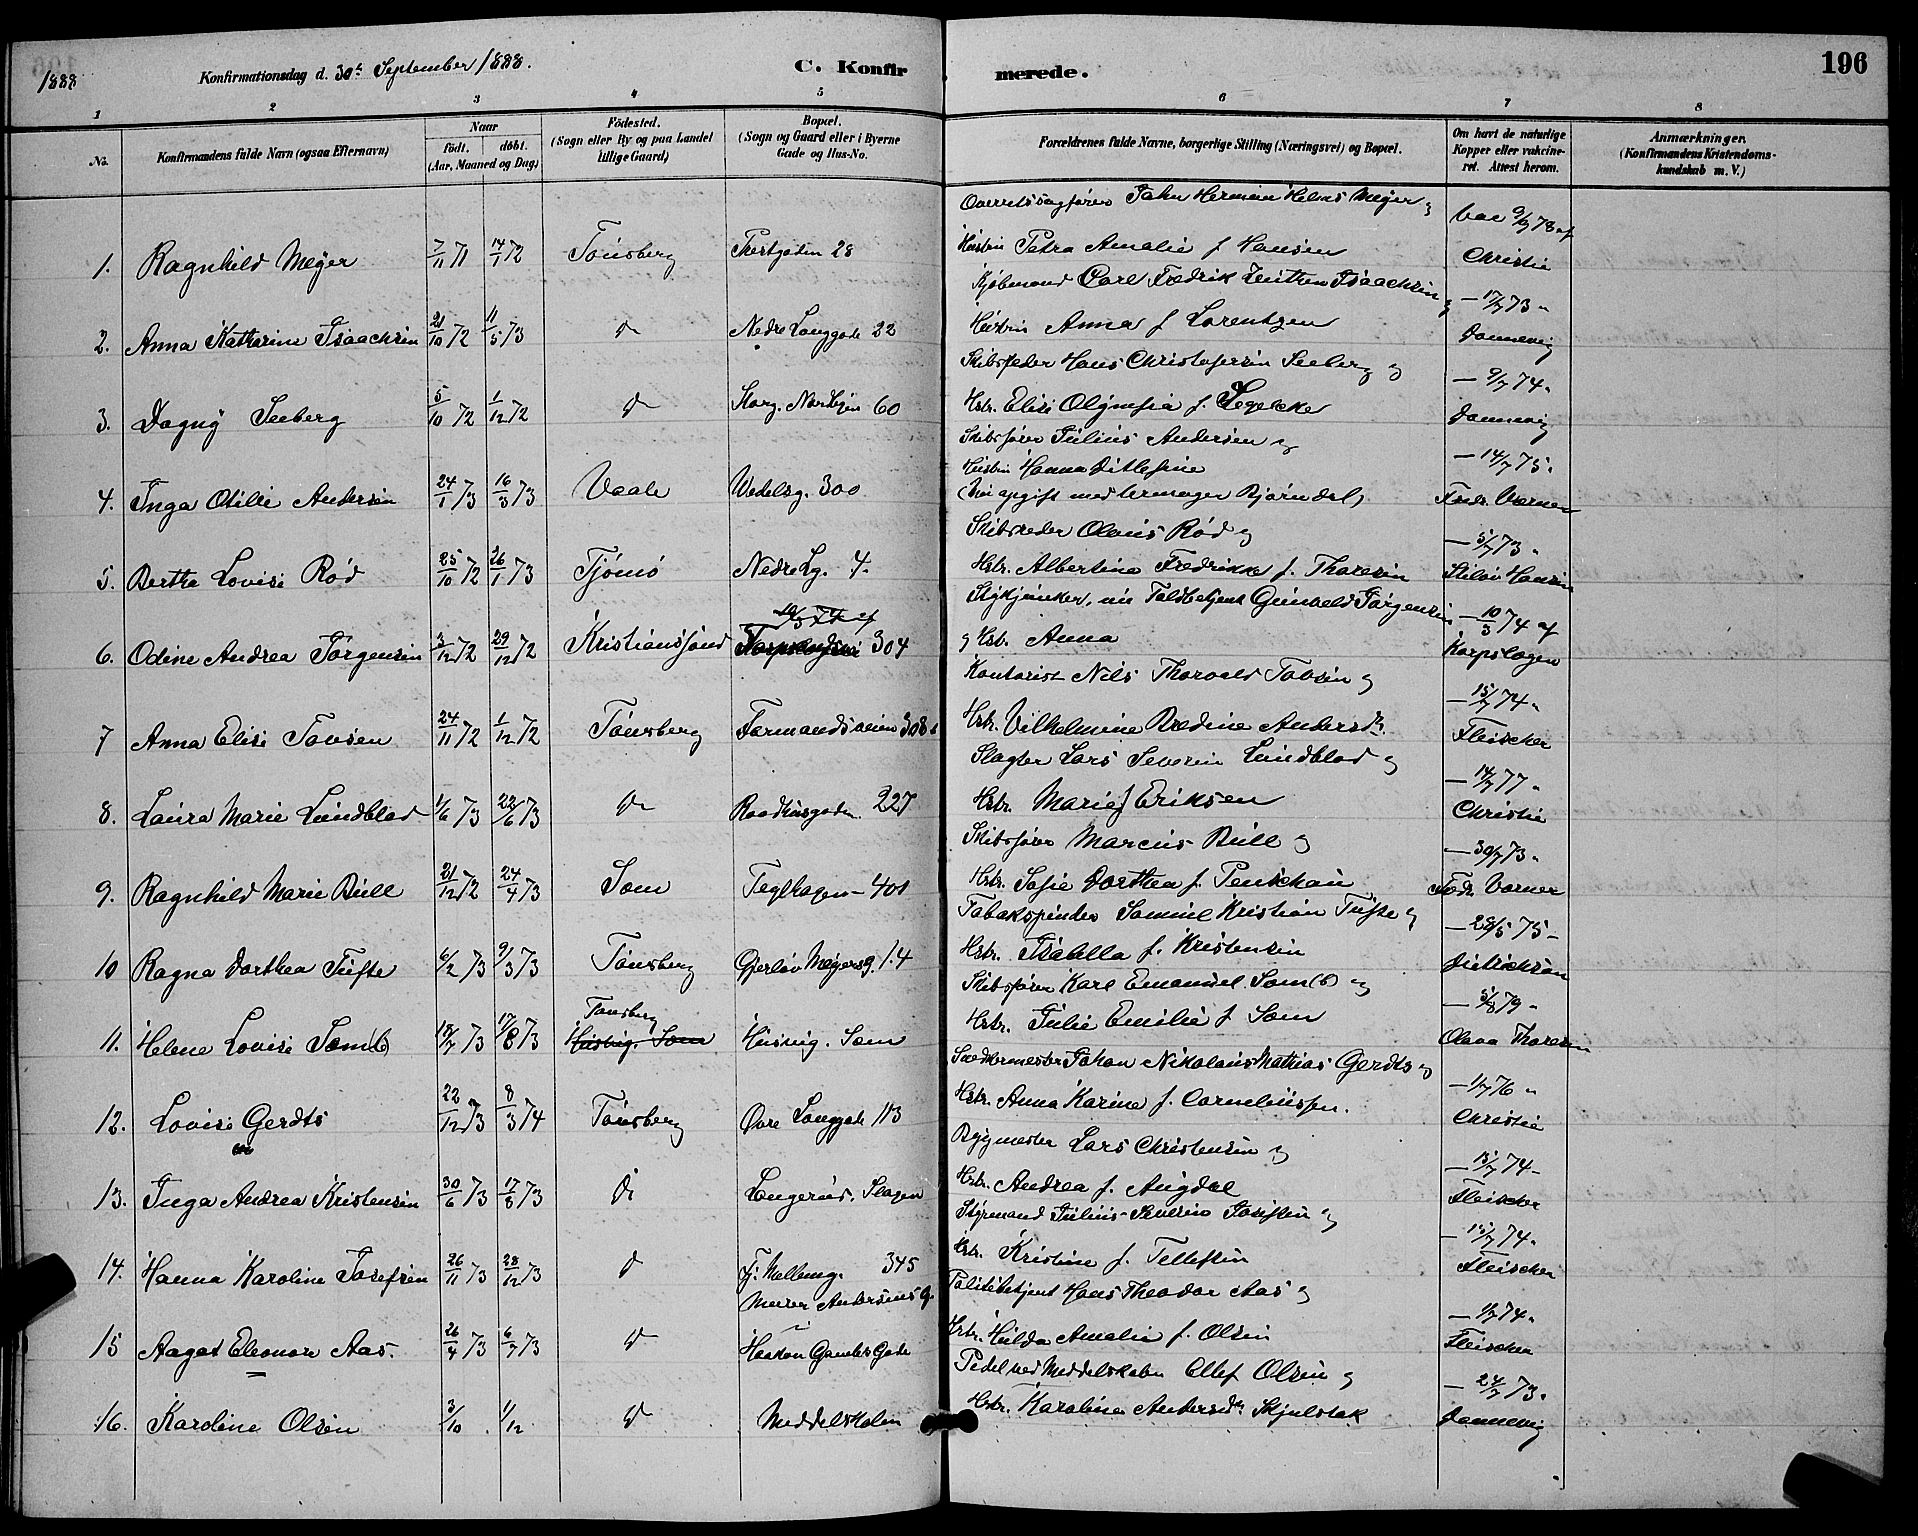 1888
Konfirmationsdag d. 30te September 1888.
C. Konfir
merede.
196
1 2 3 4 5 6 7 8
No.
Konfirmandens fulde Navn (ogsaa Efternavn)
Naar
født. døbt.
(Aar, Maaned og Dag)
Fødested.
(Sogn eller By og paa Landet tillige Gaard)
Bopæl.
(Sogn og Gaard eller i Byerne Gade og Hus-No.
Forældrenes fulde Navne, borgerlige Stilling (Næringsvei) og Bopæl.
Om havt de naturlige Kopper eller vakcineret. Attest herom.
Anmærkninger.
(Konfirmandens Kristendomskundskab m. V.)
Overretssagfører Johan Herman Helms Meyer og
1. Ragnhild Meyer 7/11 71 14/1 72 Tønsberg 28 Hustru Petra Amalie f. Hansen Vac 9/9 78 af Christie
Kjøbmand Carl Fredrik Zeuthen Isaachsen og
2. Anna Katharine Isaachsen 21/10 72 11/5 73 do Nedre Langgade 22 Hustru Anna f. Lorentzen — 17/7 73 " Dannevig
Skibsreder Hans Christofersen Seeberg og
3. Dagny Seeberg 5/10 72 1/12 72 do Storg. Nordbyen 60 Hstr. Elise Olympia f. Segelcke — 9/7 74 " Dannevig
Skibsfører Julius Andersen og
4. Inga Otilie Andersen 24/1 73 16/3 73 Vaale Wedelsg. 300 Hustru Hanna Ditlefine — 14/7 75 " Fredr. Værner
(nu opgift med Bjørndal)
Skibsreder Olaus Rød og
5. Berthe Lovise Rød 25/10 72 26/1 73 Tjømø Nedre Lg. 4. Hstr. Albertine Fredrikke f. Thoresen — 5/7 73 " Hansen
nu Toldbetjent Gunvald Jørgensen
6. Odine Andrea Jørgensen 3/12 72 29/12 72 Kristianssund 304 og Hstr. Anna — 10/3 74 af Korpslægen
Kontorist Nils Thorvald Tovsen og
7 Anna Elise Tovsen 24/11 72 1/12 72 Tønsberg Farmandsveien 308 Hstr. Vilhelmine Bredine Andersdr. — 15/7 74 " Fleischer
Slagter Lars Severin Lundblad og
8. Laura Marie Lundblad 1/6 73 22/6 73 do Raadhusgaden 227 Hstr. Marie f Eriksen — 14/7 77 " Christie
Skibsfører Marcus Bull og
9. Ragnhild Marie Bull 21/12 72 24/4 73 Sem Teglhagen 401 Hstr. Sofie Dorthea f. Penschau — 30/7 73 " Fredr. Værner
Tobakspinder Samuel Kristian Tufte og
10 Ragna Dorthea Tufte 6/2 73 9/3 73 Tønsberg Gjerløv Meyersg. 14 Hstr. Isabella f. Kristensen — 28/5 75 — Dietrichson
Skibsfører Karl Emanuel Som(b) og
11. Helene Lovise Som(b) 18/7 73 17/8 73 Tønsberg Husvig. Sem Husvig. Sem Hstr. Julie Emilie f. Som — 5/8 79 " Olava Thoresen
Snedkermester Johan Nikolaus Mathias Gerdts og
12. Lovise Gerdts 22/12 73 8/3 74 Tønsberg Øvre Langgade 113 Hstr. Anna Karine f. Corneliussen. — 1/7 76 " Christie
Bygmester Lars Christensen og
13. Inga Andrea Kristensen 30/6 73 17/8 73 do Slagen Hstr. Andrea f. Augdal — 15/7 74 — Fleischer
Styrmand Julius Severin Josefsen og
14. Hanna Karoline Josefsen 26/11 73 28/12 73 do 345 Hstr. Kristine f. Tellefsen — 15/7 74 " Fleischer
Andersens G.
Politibetjent Hans Theodor Aas og
15 Aagot Eleonore Aas. 26/4 73 6/7 73 do Haakon Gamles Gade Hstr. Hulda Amalie f. Olsen — 1/7 74 " Fleischer
Pedel ved Middelskolen Ellef Olsen og
16. Karoline Olsen 3/10 1/12 do Middelskolen Hstr. Karoline Andersdr. — 24/7 73 " Dannevig